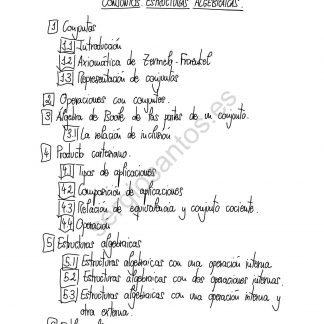 CONJUNTOS. ESTRUCTURAS ALGEBRAICAS.
1 Conjuntos
1.1 Introducción
1.2 Axiomática de Zermelo-Fraenkel
1.3 Representación de conjuntos
2 Operaciones con conjuntos.
3 Álgebra de Boole de las partes de un conjunto.
3.1 La relación de inclusión.
4 Producto cartesiano.
4.1 Tipos de aplicaciones
4.2 Composición de aplicaciones
4.3 Relación de equivalencia y conjunto cociente.
4.4 Operación
5 Estructuras algebraicas
5.1 Estructuras algebraicas con una operación interna
5.2 Estructuras algebraicas con dos operaciones internas.
5.3 Estructuras algebraicas con una operación interna y
otra externa.
sergiosantos.es